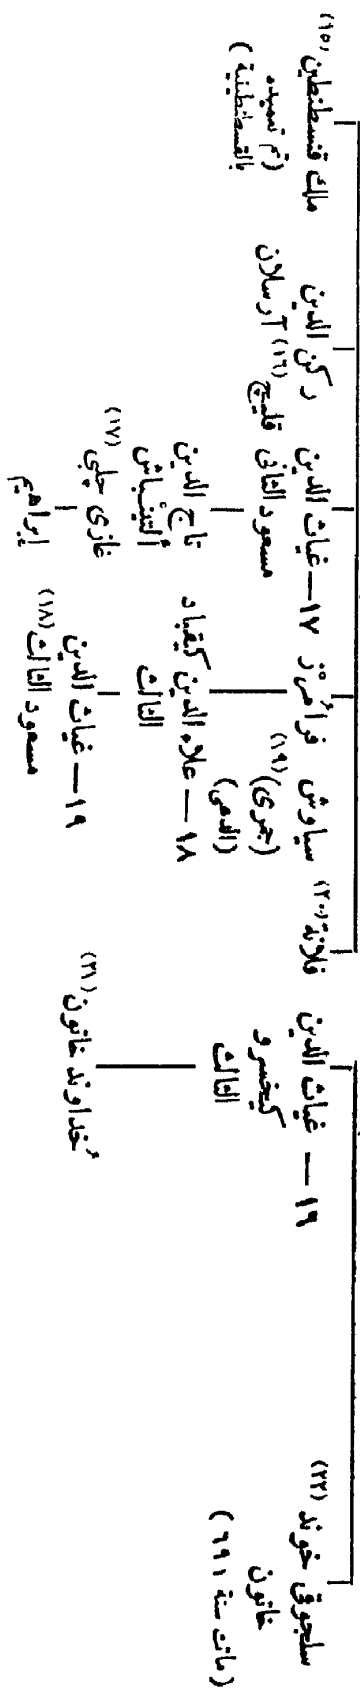 ملك قنسطنطين (١٥)
(تم تعميده
بالقسطنطينية)
ركن الدين
قليج (١٦) آرسلان
١٧ — غياث الدين
مسعود الثانى
تاج الدين
ألتنباش
غازى چلبى (١٧)
ابراهيم
فرامرز
١٨ — علاء الدين كيقباد
الثالث
١٩ — غياث الدين
مسعود الثالث (١٨)
سياوش
(جمرى) (١٩)
(الدعى)
فلانة (٢٠)
١٩ — غياث الدين
كيخسرو
الثالث
خداوند خاتون (٢١)
سلجوقى خوند (٢٢)
خاتون
(ماتت سنة ٦٩١)